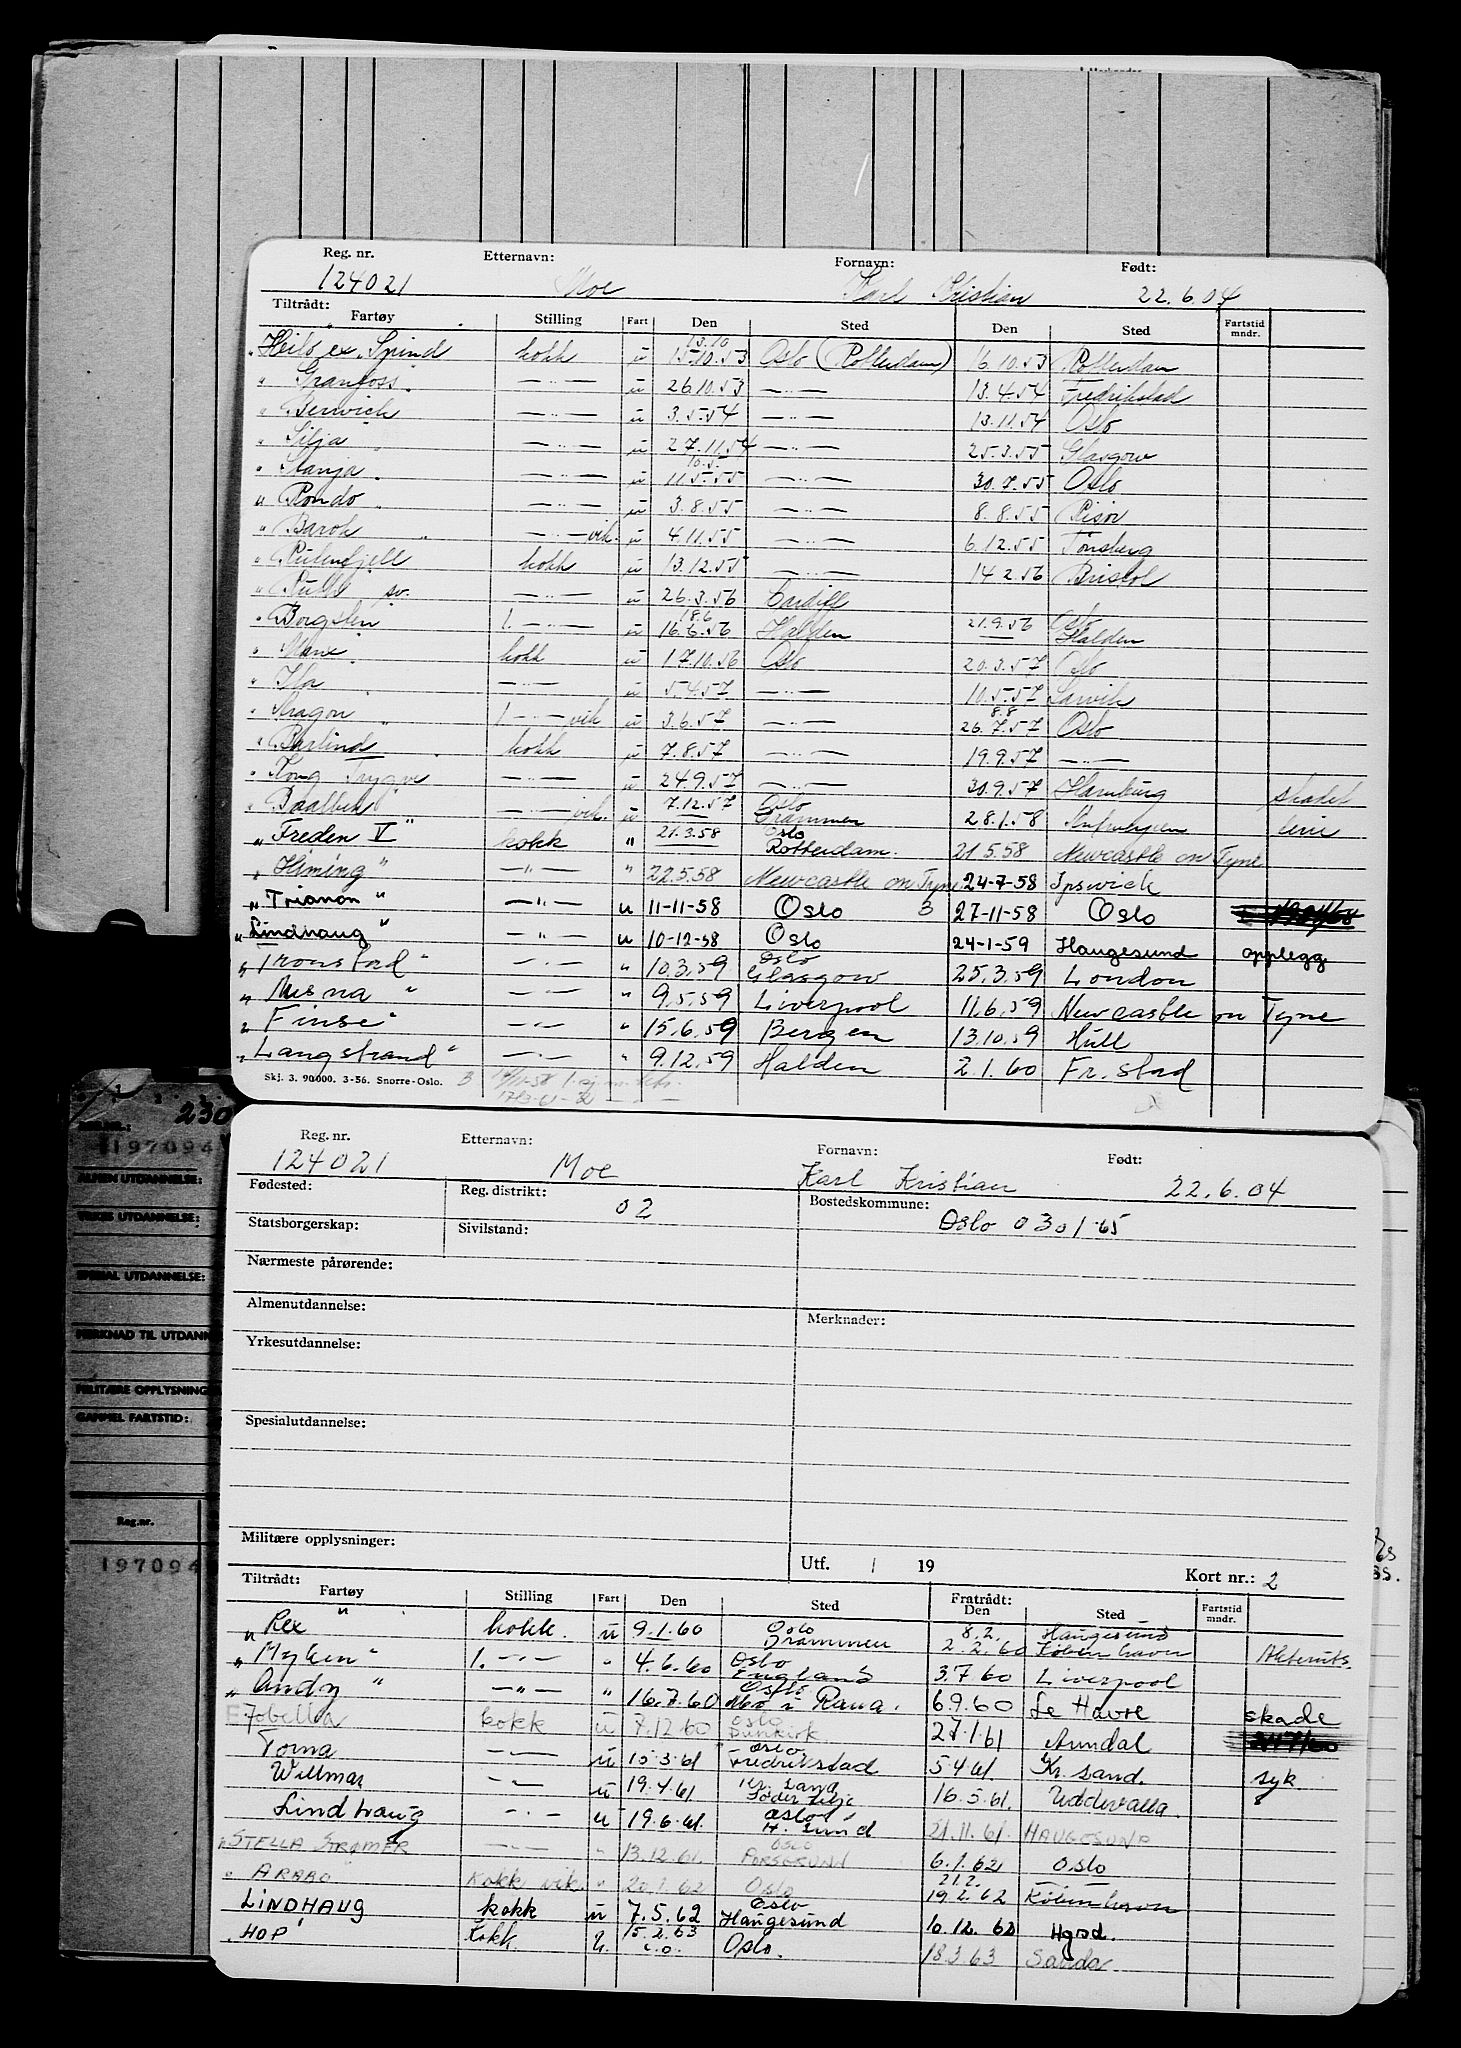 Reg. nr. Etternavn: Fornavn: Født:
124021 Moe Karl Kristian 22.6.04
Tiltrådt:
Fartøy Stilling Fart Den Sted Den Sted Fartstid mndr.
13.10
"Heilo" ex. "Spind kokk u 15.10.53 Oslo (Rotterdam) 16.10.53 Rotterdam
" Granfoss" —"— u 26.10.53 —"— 13.4.54 Fredrikstad
" Berwick —"— u 3.5.54 —"— 13.11.54 Oslo
" Silja " —"— u 27.11.54 —"— 25.3.55 Glasgow
10.5.
" Stanja " —"— u 11.5.55 —"— 30.7.55 Oslo
" Rondo " —"— u 3.8.55 —"— 8.8.55 Risør
" —"— vik. u 4.11.55 —"— 6.12.55 Tønsberg
" kokk u 13.12.55 —"— 14.2.56 Bristol
" sv. —"— u 26.3.56 Cardiff
18.6
" Borgsten 1. —"— u 16.6.56 Halden 21.9.56 Oslo Halden
" kokk u 17.10.56 Oslo 20.3.57 Oslo
" Ila " —"— u 5.4.57 —"— 10.5.57 Larvik
8.8
" 1. —"— vik u 3.6.57 —"— 26.7.57 Oslo
" kokk u 7.8.57 —"— 19.9.57 —"—
" Kong Trygve —"— u 24.9.57 —"— 30.9.57 Hamburg skadet
" Baalbek —"— vik. u 7.12.57 Oslo Drammen 28.1.58 Antwerpen
" Freden V " kokk " 21.3.58 Oslo Rotterdam. 21.5.58 Newcastle on Tyne
" Heming " —"— " 22.5.58 Newcastle on Tyne 24-7-58 Ipswich
" Trianon " —"— u 11-11-58 Oslo 3 27-11-58 Oslo
" Lindhaug " —"— u 10-12-58 Oslo 24-1-59 Haugesund opplegg
" Tronstad " —"— " 10.3.59 Oslo Glasgow 25.3.59 London
" Misna " —"— " 9.5.59 Liverpool 11.6.59 Newcastle on Tyne
" Finse " —"— " 15.6.59 Bergen 13.10.59 Hull
" Langstrand " —"— " 9.12.59 Halden 2.1.60 Fr.stad
Skj. 3. 90000. 3-56. Snorre-Oslo. 3
230
197094
ALMEN UTDANNELSE:
YRKES UTDANNELSE:
SPESIAL UTDANNELSE:
MERKNAD TIL UTDANN
MILITÆRE OPPLYSNING
GAMMEL FARTSTID:
Reg.nr.
197094
Reg. nr. Etternavn: Fornavn: Født:
124021 Moe Karl Kristian 22.6.04
Fødested: Reg. distrikt: 02 Bostedskommune: Oslo 0301-65
Statsborgerskap: Sivilstand:
Nærmeste pårørende:
Almenutdannelse: Merknader:
Yrkesutdannelse:
Spesialutdannelse:
Militære opplysninger:
Utf. / 19 Kort nr.: 2
Tiltrådt: Fratrådt:
Fartøy Stilling Fart Den Sted Den Sted Fartstid mndr.
" Rex " kokk. u 9.1.60 Oslo Drammen 8.2. 2.2.60 Haugesund København
" Myken " 1. —"— " 4.6.60 Oslo England 3.7.60 Liverpool
" Andy " —"— " 16.7.60 Oslo Mo i Rana. 6.9.60 Le Havre skade
kokk u 7.12.60 Oslo Dunkirk 27.1.61 Arendal
Torna —"— u 15.3.61 Oslo Fredrikstad 5.4.61 Kr.sand. syk
Willmar —"— u 19.4.61 Kr. sand Södertelje 16.5.61. Uddevalla.
Lindhaug —"— u 19.6.61. Oslo H. sund 21.11.61. HAUGESUND
" STELLA KROMER —"— " 13.12.61. OSLO PORSGRUNN 6.1.62 Oslo
21.2.
" ARABO Kokk vik " 20.1.62 Oslo 19.2.62 København
LINDHAUG kokk u 7.5.62 Oslo Haugesund 10.12.62 Hgsd.
" HOP Kokk u. 15.2.63 Oslo. 18.3.63 Sauda.